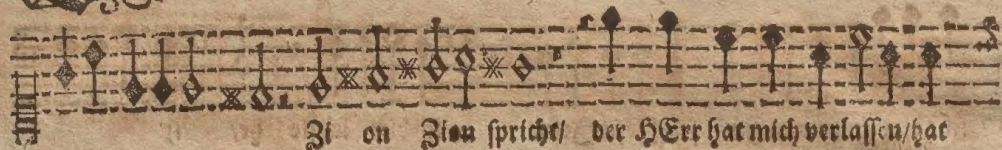 Zi on Zion ſpricht/ der HErr hat mich verlaſſen/hat